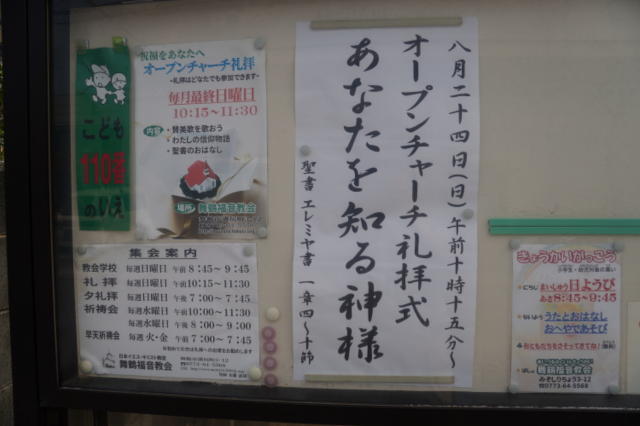 こども
110番
のいえ
祝福をあなたへ
オープンチャーチ礼拝
-礼拝はどなたでも参加できます-
毎月最終日曜日
10:15～11:30
内容
・賛美歌を歌おう
・わたしの信仰物語
・聖書のおはなし
場所
舞鶴福音教会
八月二十四日（日）午前十時十五分～
オープンチャーチ礼拝式
あなたを知る神様
聖書 エレミヤ書 一章四～十節
集会案内
教会学校 毎週日曜日 午前 8:45～9:45
礼拝 毎週日曜日 午前10:15～11:30
夕礼拝 毎週日曜日 午後 7:00～7:45
祈祷会 毎週水曜日 午前10:00～11:30
毎週水曜日 午後 8:00～9:00
早天祈祷会 毎週火・金 午前 7:00～7:45
日本イエス・キリスト教団
舞鶴福音教会
きょうかいがっこう
小学生・幼児対象の集い
まいしゅう日ようび
あさ8:45～9:45
うたとおはなし
おへやあそび
おともだちをさそってきてね!
舞鶴福音教会
みそしりちょう53-12
0773-64-5569